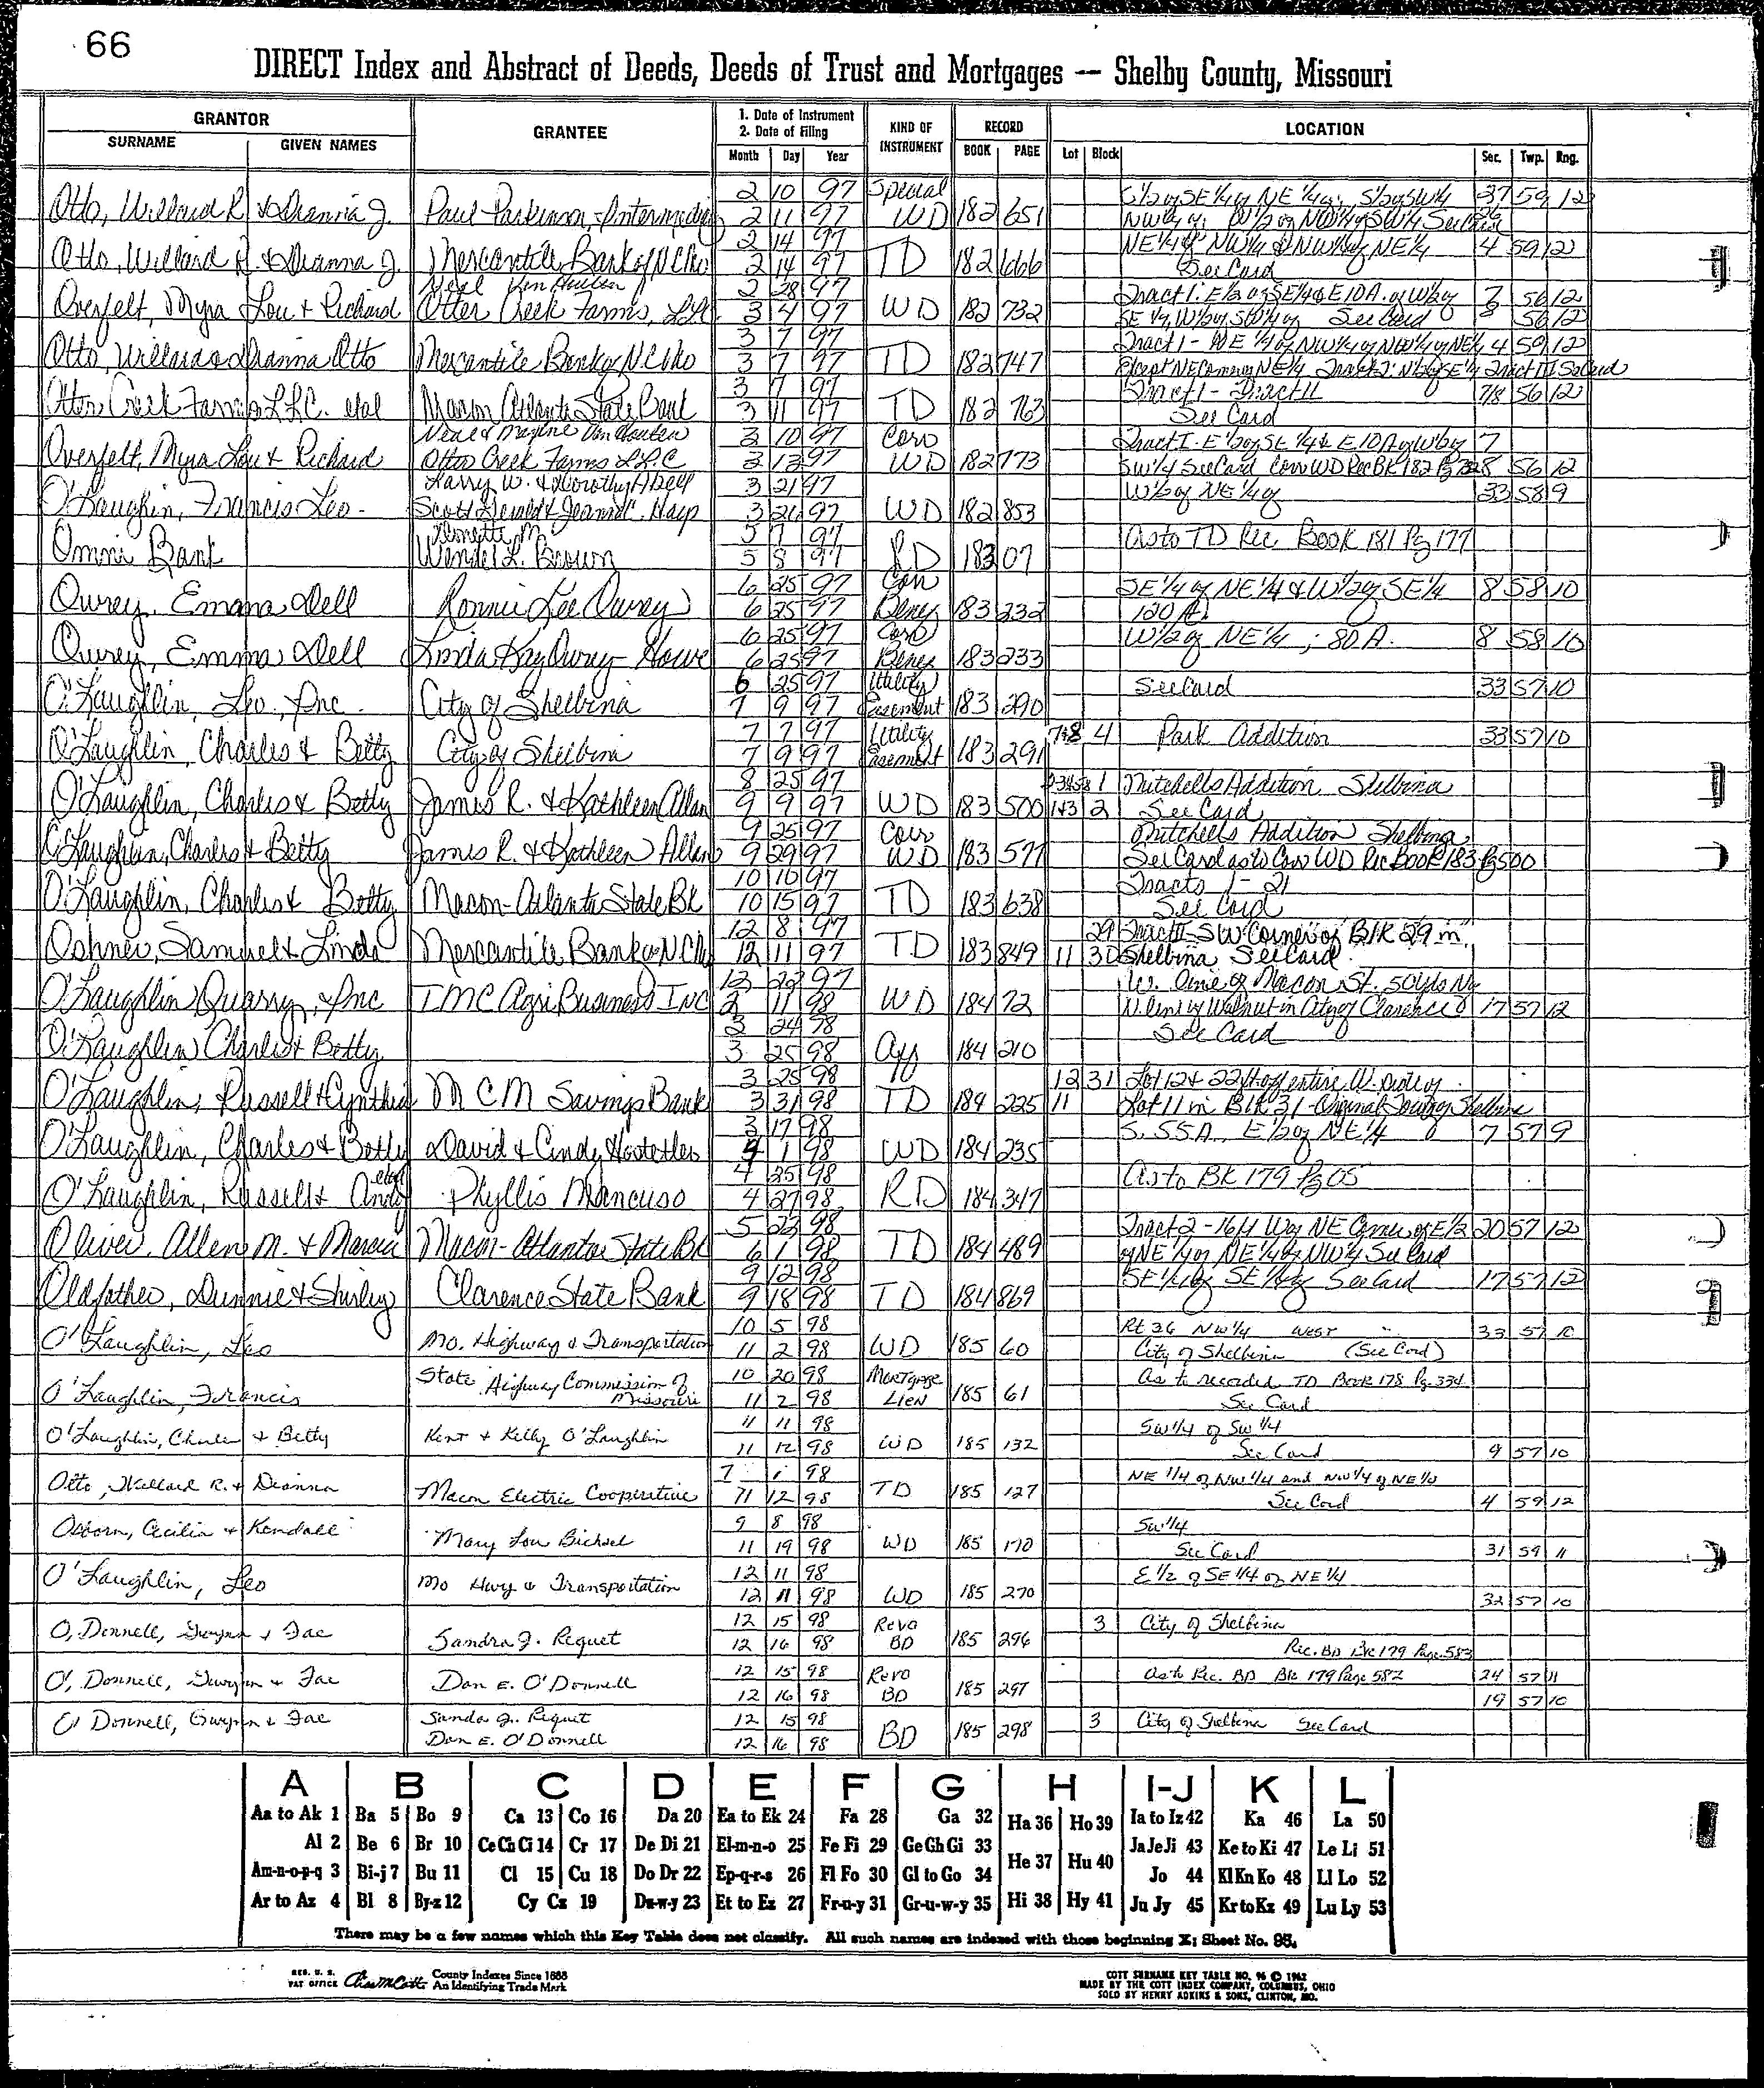 66
DIRECT Index and Abstract of Deeds, Deeds of Trust and Mortgages — Shelby County, Missouri
GRANTOR GRANTEE 1. Date of Instrument 2. Date of Filing KIND OF INSTRUMENT RECORD LOCATION
SURNAME GIVEN NAMES Month Day Year BOOK PAGE Lot Block Sec. Twp. Rng.
2 10 97 Special S1/2 of SE1/4 of NE1/4 S1/2 of SW1/4 37 59 12
Otto, Willard R & Dianna J. Paul Parkinson, Intermediary 2 11 97 WD 182 651 NW1/4 of W1/2 of NW1/4 of SW1/4 See Card
2 14 97 NE1/4 of NW1/4 & NW1/4 of NE1/4 4 59 12
Otto, Willard R. & Dianna J. Mercantile Bank of NCMo 2 14 97 TD 182 666 See Card
Neal Van Houten 2 28 97 Tract I: E1/2 of SE1/4 & E10A. of W1/2 of 7 56 12
Overfelt, Myra Lou & Richard Otter Creek Farms, LLC 3 4 97 WD 182 732 SE1/4 W1/2 of SW1/4 of See Card 8 56 12
3 7 97 Tract 1 - NE1/4 of NW1/4 of NW1/4 of NE1/4 4 59 12
Otto, Willard & Dianna Otto Mercantile Bank of NCMo 3 7 97 TD 182 747 Except NE Corner of NE1/4 Tract 2: N1/2 of SE1/4 Tract III See Card
3 7 97 Tract 1 - Tract II 7/8 56 12
Otter Creek Farms L.L.C. etal Macon Atlanta State Bank 3 11 97 TD 182 763 See Card
Neal & Maxine Van Houten 3 10 97 Corr Tract I. E1/2 of SE1/4 & E10A of W1/2 of 7
Overfelt, Myra Lou & Richard Otter Creek Farms L.L.C 3 13 97 WD 182 773 SW1/4 See Card Corr WD Rec BK 182 Pg 732 8 56 12
Larry W. & Dorothy Abell 3 21 97 W1/2 of NE1/4 of 33 58 9
O'Laughlin, Francis Leo Scott Gerald & Jeannie Hays 3 26 97 WD 182 853
Jennette M. 5 7 97 As to TD Rec Book 181 Pg 177
Omni Bank Wendel L. Brown 5 8 97 RD 183 07
6 25 97 Corr SE1/4 of NE1/4 & W1/2 of SE1/4 8 58 10
Owrey, Emma Dell Ronnie Lee Owrey 6 25 97 Benef 183 232 120 A.
6 25 97 Corr W1/2 of NE1/4; 80 A. 8 58 10
Owrey, Emma Dell Linda Kay Owrey Howe 6 25 97 Benef 183 233
6 25 97 Utility See Card 33 57 10
O'Laughlin, Leo, Inc. City of Shelbina 7 9 97 Easement 183 290
7 7 97 Utility 7&8 4 Park Addition 33 57 10
O'Laughlin, Charles & Betty City of Shelbina 7 9 97 Easement 183 291
8 25 97 1 Mitchells Addition Shelbina
O'Laughlin, Charles & Betty James R. & Kathleen Allen 9 9 97 WD 183 500 1&3 2 See Card
9 25 97 Corr Mitchells Addition Shelbina
O'Laughlin, Charles & Betty James R. & Kathleen Allen 9 29 97 WD 183 577 See Card as to Corr WD Rec Book 183 Pg 500
10 10 97 Tracts 1 - 21
O'Laughlin, Charles & Betty Macon-Atlanta State Bk 10 15 97 TD 183 638 See Card
12 8 97 29 Tract II SW Corner of Blk 29 in
Oshner, Samuel & Linda Mercantile Bank of NCMo 12 11 97 TD 183 849 11 30 Shelbina See Card
12 23 97 W. Line of Macon St. 50 yds N of
O'Laughlin Quarry, Inc IMC AgriBusiness Inc 2 11 98 WD 184 72 N. line of Walnut in City of Clarence 17 57 12
3 24 98 See Card
O'Laughlin Charles & Betty 3 25 98 Aff 184 210
3 25 98 12 31 Lot 12 & 22 ft off entire W. side of
O'Laughlin, Russell & Cynthia MCM Savings Bank 3 31 98 TD 184 225 11 Lot 11 in Blk 31 - Original Town of Shelbina
3 17 98 S. 55A, E1/2 of NE1/4 7 57 9
O'Laughlin, Charles & Betty David & Cindy Hostetler 4 1 98 WD 184 235
4 25 98 As to BK 179 Pg 05
O'Laughlin, Russell & Andy etal Phyllis Mancuso 4 27 98 RD 184 347
5 22 98 Tract 2 - 16 ft W of NE Corner of E1/2 20 57 12
Oliver, Allen M. & Marcia Macon-Atlanta State Bk 6 1 98 TD 184 489 of NE1/4 of NE1/4 of NW1/4 See Card
9 12 98 SE1/4 of SE1/4 of See Card 17 57 12
Oldfather, Dennie & Shirley Clarence State Bank 9 18 98 TD 184 869
10 5 98 Rt 36 NW1/4 West 33 57 10
O'Laughlin, Leo Mo. Highway & Transportation 11 2 98 WD 185 60 City of Shelbina (See Card)
State Highway Commission of 10 20 98 Mortgage As to recorded TD Book 178 Pg 334
O'Laughlin, Francis Missouri 11 2 98 Lien 185 61 See Card
11 11 98 SW1/4 of SW1/4
O'Laughlin, Charles & Betty Kent & Kelly O'Laughlin 11 12 98 WD 185 132 See Card 9 57 10
7 1 98 NE1/4 of NW1/4 and NW1/4 of NE1/4
Otto, Willard R. & Dianna Macon Electric Cooperative 11 12 98 TD 185 127 See Card 4 59 12
9 8 98 SW1/4
Osborn, Cecilia & Kendall Mary Lou Bichsel 11 19 98 WD 185 170 See Card 31 59 11
12 11 98 E1/2 of SE1/4 of NE1/4
O'Laughlin, Leo Mo Hwy & Transportation 12 11 98 WD 185 270 32 57 10
12 15 98 Revo 3 City of Shelbina
O, Donnell, Gwynn & Fae Sandra J. Riquet 12 16 98 BD 185 296 Rec. BD Bk 179 Page 583
12 15 98 Revo As to Rec. BD Bk 179 Page 582 24 57 11
O', Donnell, Gwynn & Fae Dan E. O'Donnell 12 16 98 BD 185 297 19 57 10
Sanda J. Riquet 12 15 98 3 City of Shelbina See Card
O' Donnell, Gwynn & Fae Dan E. O'Donnell 12 16 98 BD 185 298
A B C D E F G H I-J K L
Aa to Ak 1 Ba 5 Bo 9 Ca 13 Co 16 Da 20 Ea to Ek 24 Fa 28 Ga 32 Ha 36 Ho 39 Ia to Iz 42 Ka 46 La 50
Al 2 Be 6 Br 10 Ce Ch Ci 14 Cr 17 De Di 21 El-m-n-o 25 Fe Fi 29 Ge Gh Gi 33 He 37 Hu 40 Ja Je Ji 43 Ke to Ki 47 Le Li 51
Am-n-o-p-q 3 Bi-j 7 Bu 11 Cl 15 Cu 18 Do Dr 22 Ep-q-r-s 26 Fl Fo 30 Gl to Go 34 Jo 44 Kl Kn Ko 48 Ll Lo 52
Ar to Az 4 Bl 8 By-z 12 Cy Cz 19 Du-w-y 23 Et to Ez 27 Fr-u-y 31 Gr-u-w-y 35 Hi 38 Hy 41 Ju Jy 45 Kr to Kz 49 Lu Ly 53
There may be a few names which this Key Table does not classify. All such names are indexed with those beginning X; Sheet No. 95.
REG. U. S. PAT OFFICE County Indexes Since 1888 An Identifying Trade Mark
COTT SURNAME KEY TABLE NO. 96 © 1962
MADE BY THE COTT INDEX COMPANY, COLUMBUS, OHIO
SOLD BY HENRY ADKINS & SONS, CLINTON, MO.